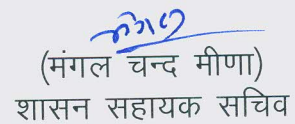 मंगल
(मंगल चन्द मीणा)
शासन सहायक सचिव